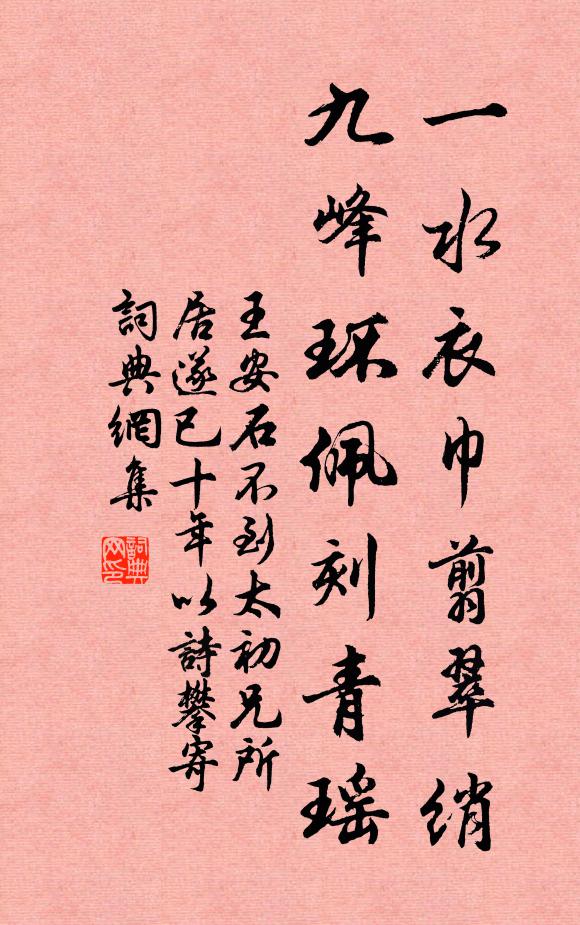 一水衣巾翦翠綃
九峰环佩刻青瑶
王安石不到太初兄所
居遂已十年以詩攀寄
詞典網集
詞典
网印